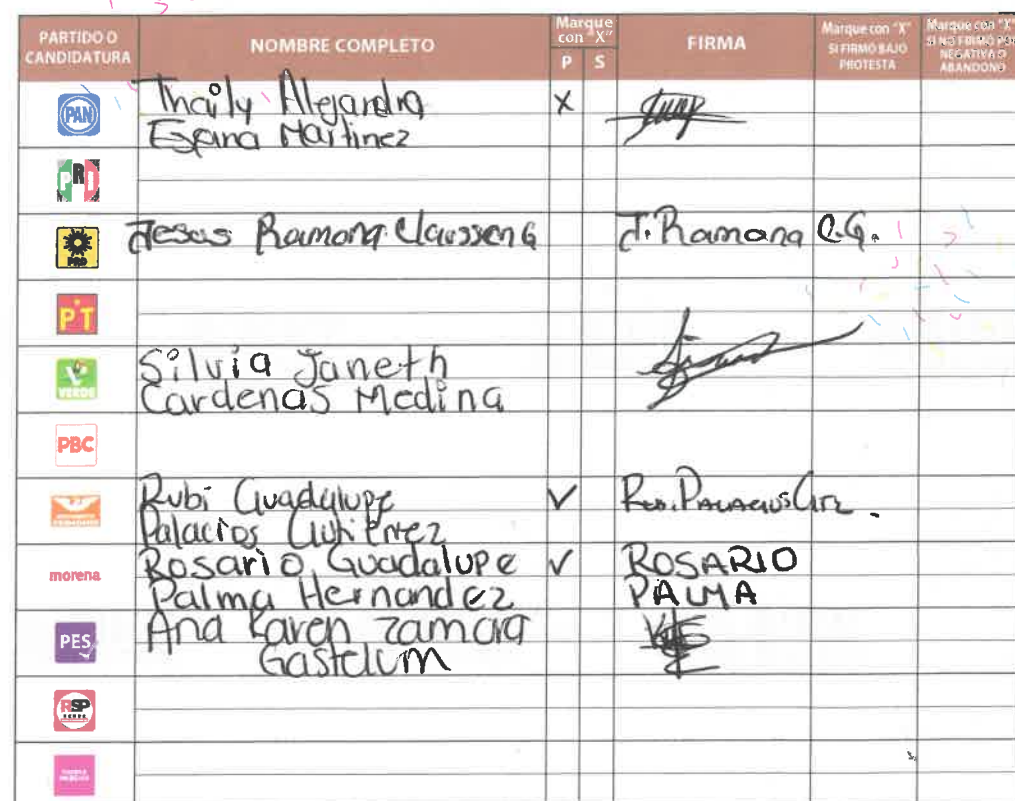 PARTIDO O CANDIDATURA
NOMBRE COMPLETO
Marque con "X"
P S
FIRMA
Marque con "X" SI FIRMÓ BAJO PROTESTA
Marque con "X" SI NO FIRMÓ POR NEGATIVA O ABANDONO
PAN
Thaily Alejandra X
Espana Martinez
PRI
PRD
Jesus Ramona Claussen G J. Ramona C.G.
PT
VERDE
Silvia Janeth
Cardenas Medina
PBC
Rubi Guadalupe V
Palacios Gutierrez
morena
Rosario Guadalupe V ROSARIO
Palma Hernandez PALMA
PES
Ana Karen Zamora
Gastelum
RSP